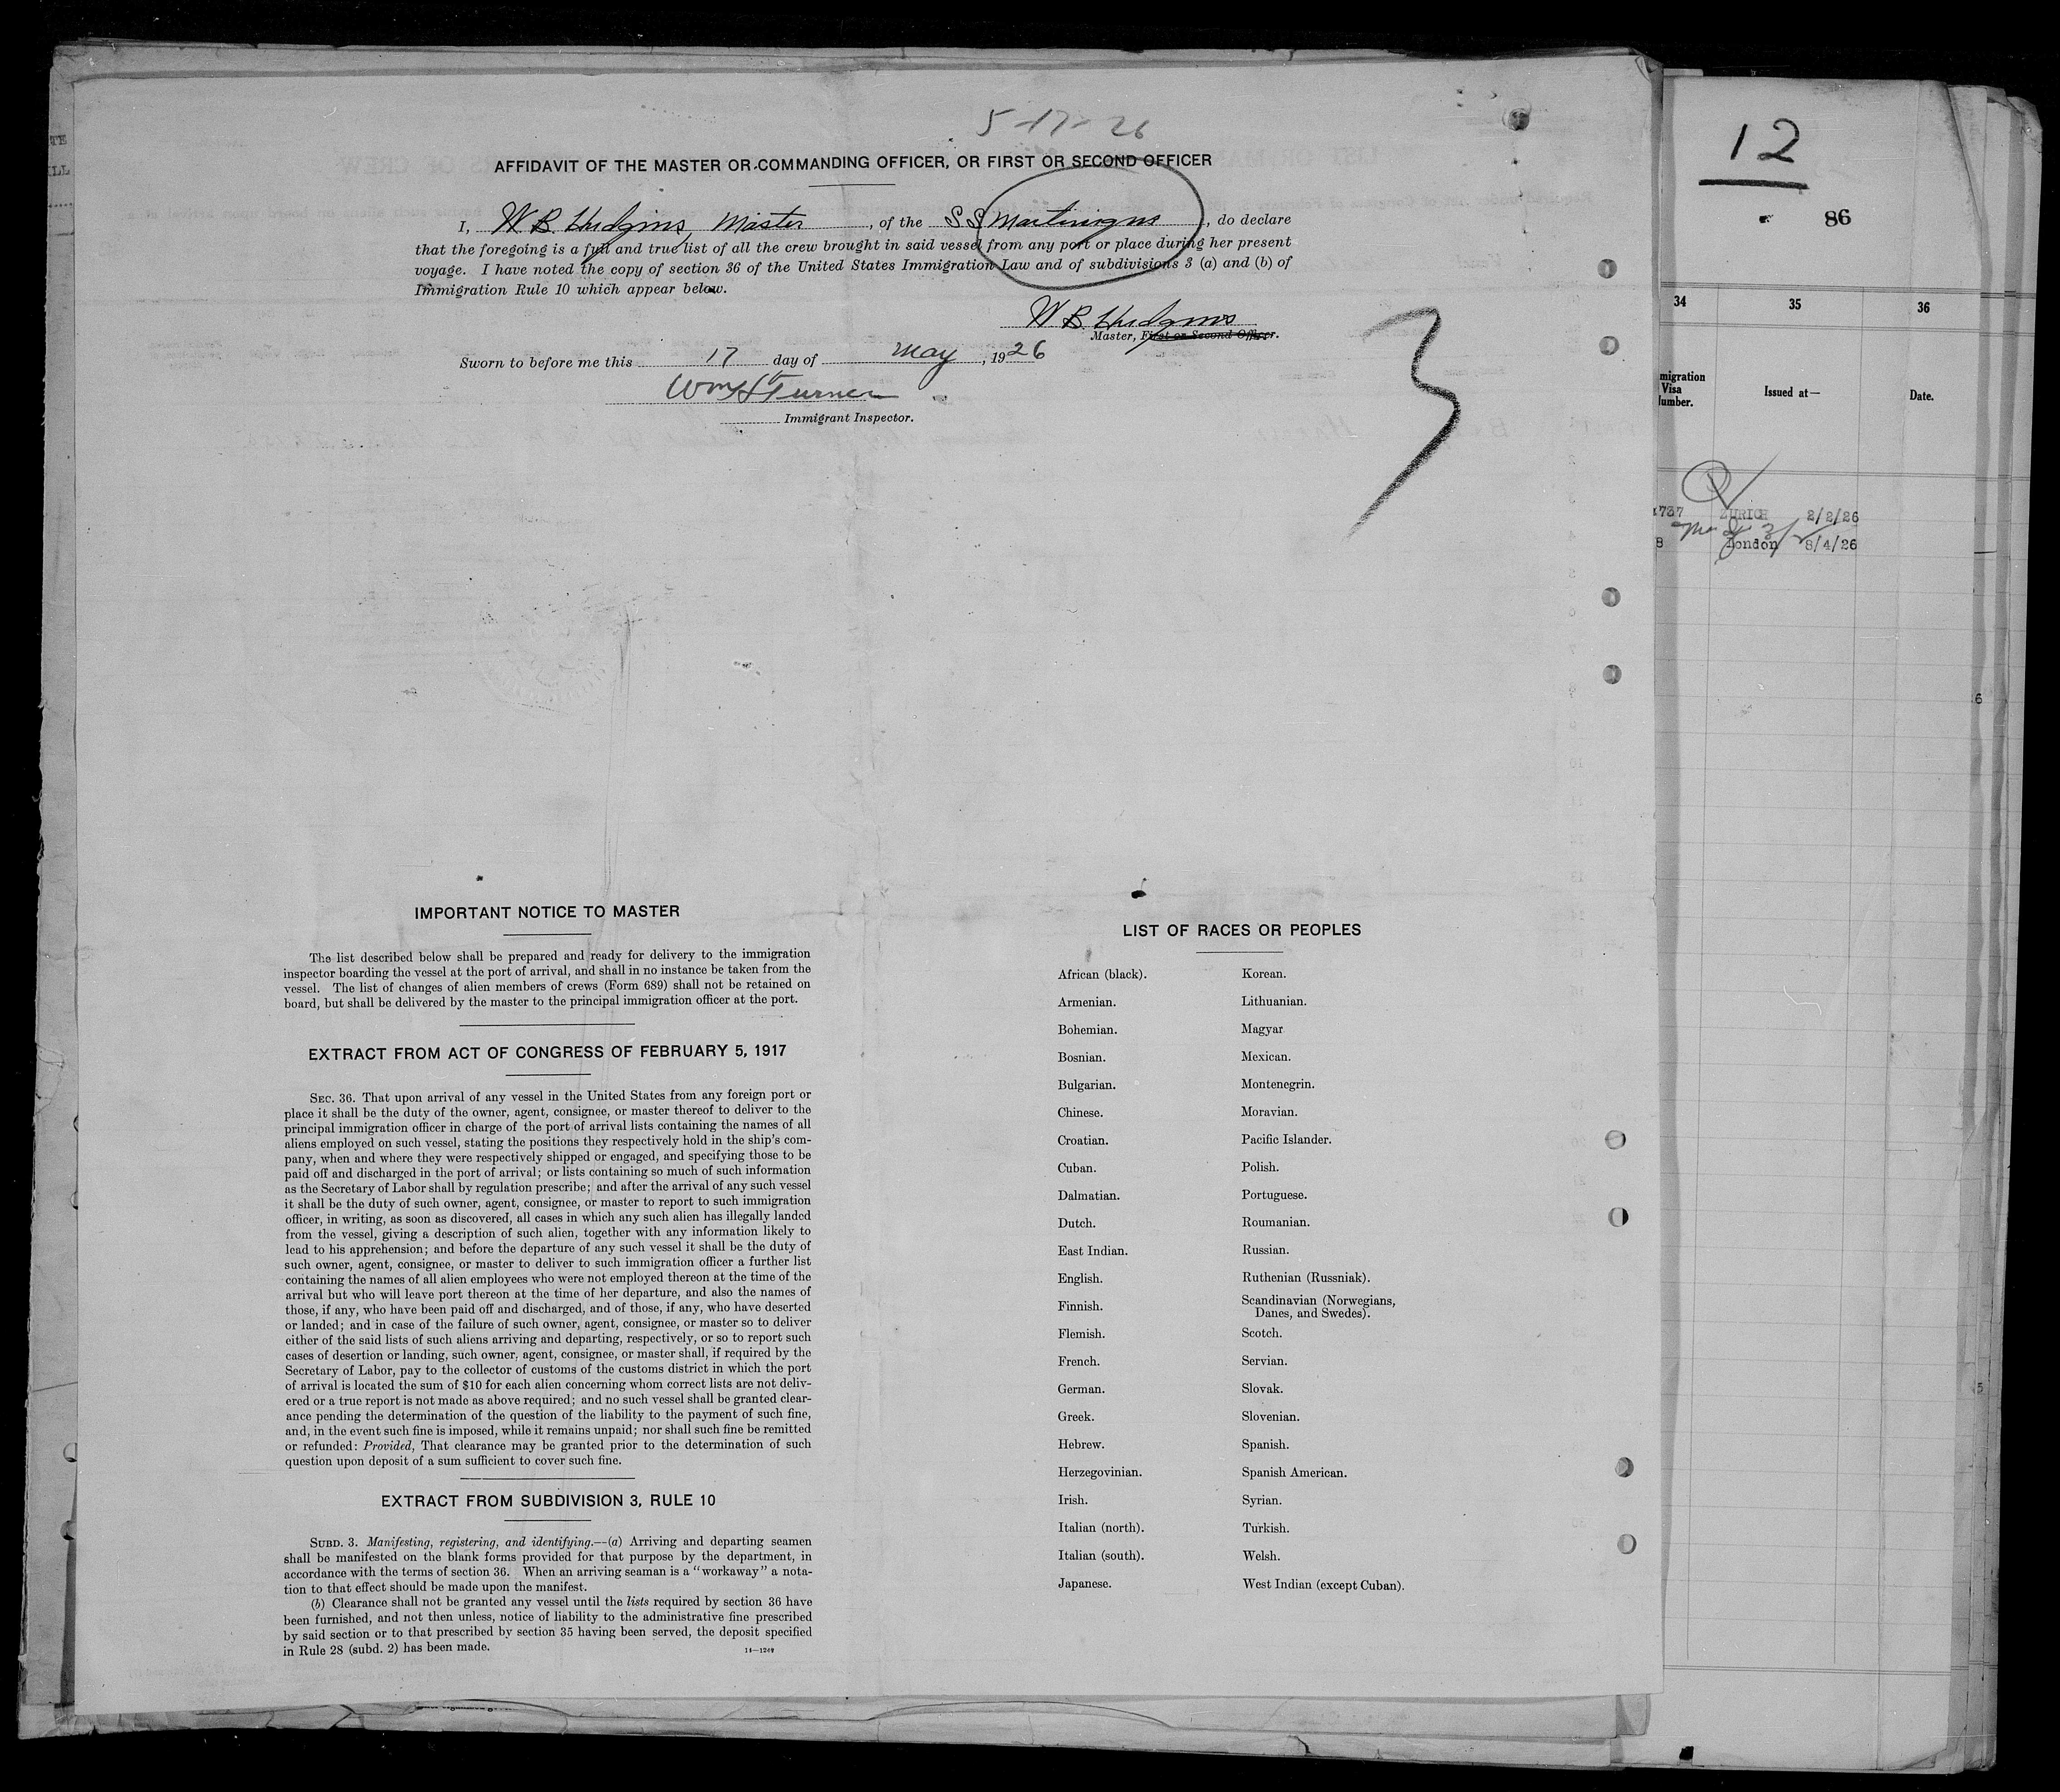 5-17-26
AFFIDAVIT OF THE MASTER OR COMMANDING OFFICER, OR FIRST OR SECOND OFFICER
I, W B Hudgins, Master, of the SS Martinique, do declare
that the foregoing is a full and true list of all the crew brought in said vessel from any port or place during her present
voyage. I have noted the copy of section 36 of the United States Immigration Law and of subdivisions 3 (a) and (b) of
Immigration Rule 10 which appear below.
W B Hudgins
Master, First or Second Officer.
Sworn to before me this 17 day of May, 1926
Wm H Turner
Immigrant Inspector.
3
IMPORTANT NOTICE TO MASTER
The list described below shall be prepared and ready for delivery to the immigration
inspector boarding the vessel at the port of arrival, and shall in no instance be taken from the
vessel. The list of changes of alien members of crews (Form 689) shall not be retained on
board, but shall be delivered by the master to the principal immigration officer at the port.
EXTRACT FROM ACT OF CONGRESS OF FEBRUARY 5, 1917
SEC. 36. That upon arrival of any vessel in the United States from any foreign port or
place it shall be the duty of the owner, agent, consignee, or master thereof to deliver to the
principal immigration officer in charge of the port of arrival lists containing the names of all
aliens employed on such vessel, stating the positions they respectively hold in the ship's com-
pany, when and where they were respectively shipped or engaged, and specifying those to be
paid off and discharged in the port of arrival; or lists containing so much of such information
as the Secretary of Labor shall by regulation prescribe; and after the arrival of any such vessel
it shall be the duty of such owner, agent, consignee, or master to report to such immigration
officer, in writing, as soon as discovered, all cases in which any such alien has illegally landed
from the vessel, giving a description of such alien, together with any information likely to
lead to his apprehension; and before the departure of any such vessel it shall be the duty of
such owner, agent, consignee, or master to deliver to such immigration officer a further list
containing the names of all alien employees who were not employed thereon at the time of the
arrival but who will leave port thereon at the time of her departure, and also the names of
those, if any, who have been paid off and discharged, and of those, if any, who have deserted
or landed; and in case of the failure of such owner, agent, consignee, or master so to deliver
either of the said lists of such aliens arriving and departing, respectively, or so to report such
cases of desertion or landing, such owner, agent, consignee, or master shall, if required by the
Secretary of Labor, pay to the collector of customs of the customs district in which the port
of arrival is located the sum of $10 for each alien concerning whom correct lists are not deliv-
ered or a true report is not made as above required; and no such vessel shall be granted clear-
ance pending the determination of the question of the liability to the payment of such fine,
and, in the event such fine is imposed, while it remains unpaid; nor shall such fine be remitted
or refunded: Provided, That clearance may be granted prior to the determination of such
question upon deposit of a sum sufficient to cover such fine.
EXTRACT FROM SUBDIVISION 3, RULE 10
SUBD. 3. Manifesting, registering, and identifying.—(a) Arriving and departing seamen
shall be manifested on the blank forms provided for that purpose by the department, in
accordance with the terms of section 36. When an arriving seaman is a "workaway" a nota-
tion to that effect should be made upon the manifest.
(b) Clearance shall not be granted any vessel until the lists required by section 36 have
been furnished, and not then unless, notice of liability to the administrative fine prescribed
by said section or to that prescribed by section 35 having been served, the deposit specified
in Rule 28 (subd. 2) has been made.
14—1249
LIST OF RACES OR PEOPLES
African (black). Korean.
Armenian. Lithuanian.
Bohemian. Magyar
Bosnian. Mexican.
Bulgarian. Montenegrin.
Chinese. Moravian.
Croatian. Pacific Islander.
Cuban. Polish.
Dalmatian. Portuguese.
Dutch. Roumanian.
East Indian. Russian.
English. Ruthenian (Russniak).
Finnish. Scandinavian (Norwegians,
Danes, and Swedes).
Flemish. Scotch.
French. Servian.
German. Slovak.
Greek. Slovenian.
Hebrew. Spanish.
Herzegovinian. Spanish American.
Irish. Syrian.
Italian (north). Turkish.
Italian (south). Welsh.
Japanese. West Indian (except Cuban).
12
86
34 35 36
migration
Visa
Number.
Issued at—
Date.
737 ZURICH 2/2/26
8 London 8/4/26
6
5